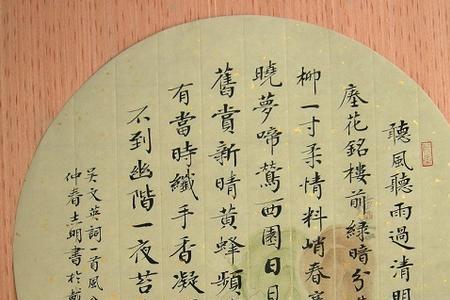 聽風聽雨過清明
瘞花銘樓前綠暗分
柳一寸柔情料峭春寒
曉夢啼鶯西園日日
舊賞新晴黃蜂頻
有當時纖手香凝
不到幽階一夜苔
吳文英詞一首風入
仲春志明書於